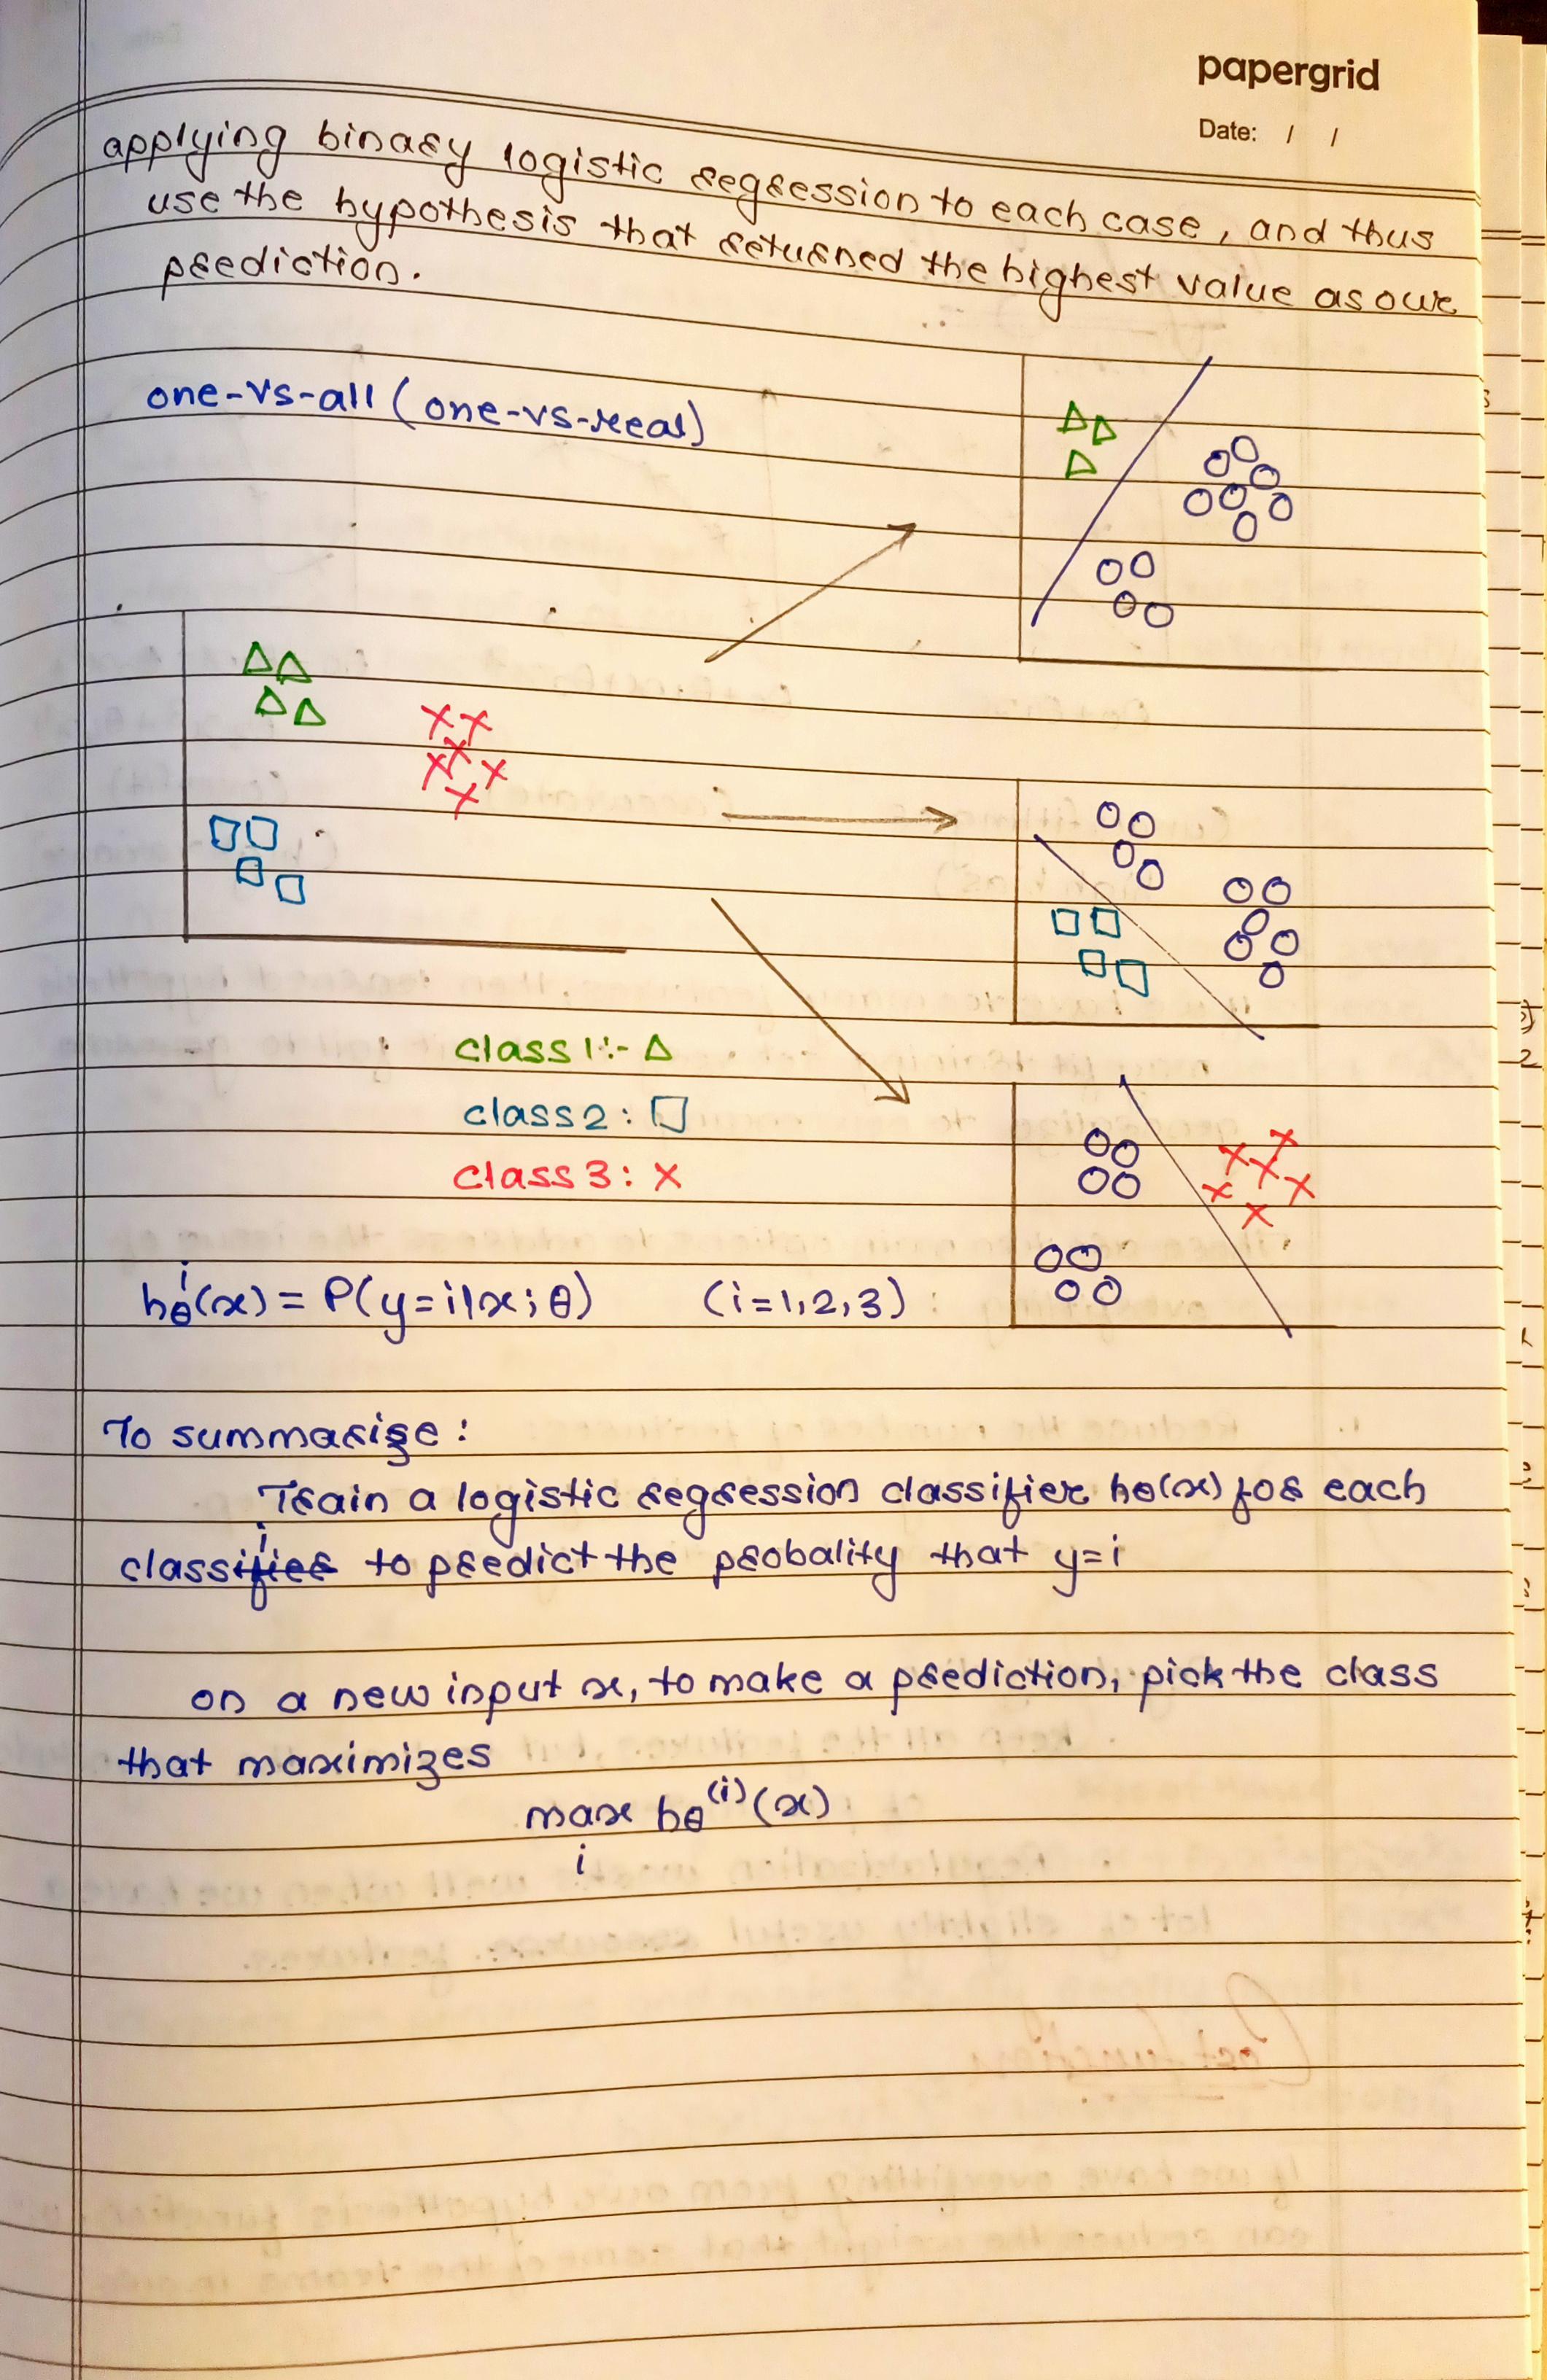 papergrid
Date: / /
applying binary logistic regression to each case, and thus
use the hypothesis that returned the highest value as our
prediction.
one-vs-all (one-vs-real)
class 1:- △
class 2: □
class 3: ×
hθⁱ(x) = P(y=i|x; θ) (i=1,2,3)
To summarise:
Train a logistic regression classifier hθ(x) for each
classifier i to predict the probality that y=i
on a new input x, to make a prediction, pick the class
that maximizes
max hθ⁽ⁱ⁾(x)
i